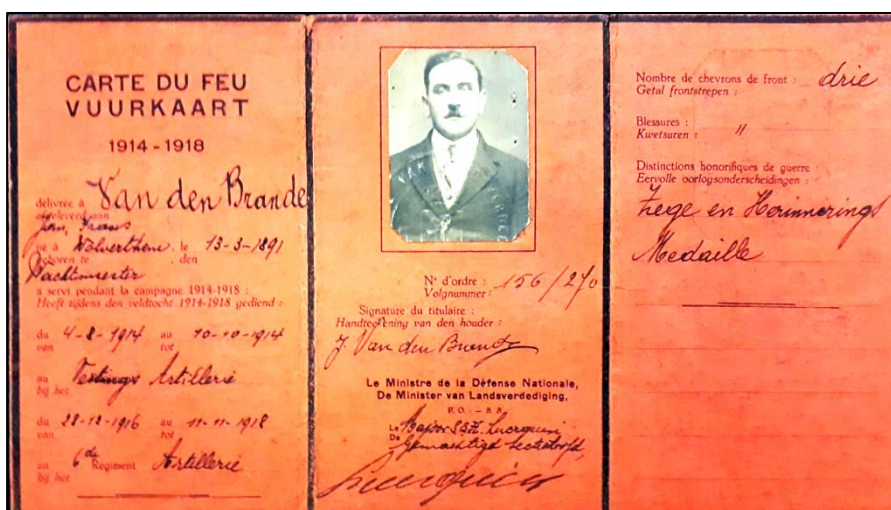 CARTE DU FEU
VUURKAART
1914 - 1918
délivrée à Van den Brande
afgeleverd aan
Jan, Frans
né à Wolverthem, le 13-3-1891
geboren te den
Wachtmeester
a servi pendant la campagne 1914-1918 :
Heeft tijdens den veldtocht 1914-1918 gediend :
du 4-8-1914 au 10-10-1914
van tot
au Vestings Artillerie
bij het
du 28-12-1916 au 11-11-1918
van tot
au 6de Regiment Artillerie
bij het
N° d'ordre : 156/270
Volgnummer :
Signature du titulaire :
Handteekening van den houder :
J. Van den Brande
Le Ministre de la Défense Nationale,
De Minister van Landsverdediging,
P. O. - B. B.
Le Majoor
De Gemachtigd Sectiehoofd,
Nombre de chevrons de front : drie
Getal frontstrepen :
Blessures : "
Kwetsuren :
Distinctions honorifiques de guerre :
Eervolle oorlogsonderscheidingen :
Zege en Herinnerings
Medaille